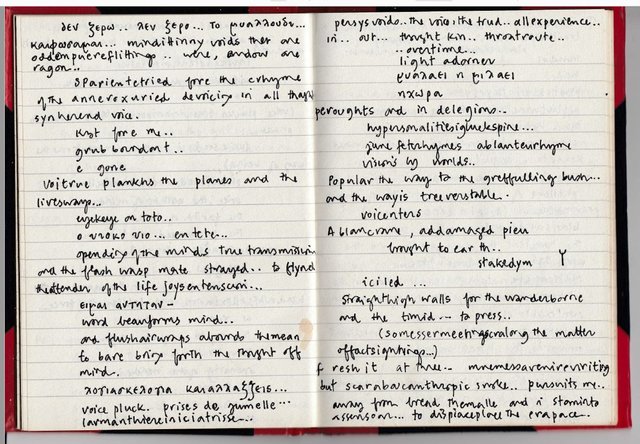 δεν ξερω.. λεν ξερο... το μυαλλουδε...
καιφωσαμαι... mindittinny voids that are
.. were, andow are
ragon..
the cvrhyme
of the in all that
synherend voice.
kist fore me..
grub bourdont..
e gone
voitrue plankths the planes and the
livesways...
eyekeye on toto..
ο ντοκο νιο... en tete..
opendity of the minds true transmission
and the flash wasp mate strayed.. to flynd
the attender of the life joysentenscuri...
ειμαι αντηταν-
word beauforms mind..
and flushairwags abounds the mean
to bare bring forth the thought off
mind.
λογιασκελογια καιαλλαξζεις...
voice pluck. prises de jumelle...
larmanthiereiniciatrisse..
persysvoido.. the voio, the trud.. all experience..
in.. out... thought kin.. throatroute..
..overtime..
light adorner
μυαλαει η μιλαει
ηχωρα
peroughts and in delegions..
hypersonalitiesiguekspine...
june fetvrhymes ablanteurhyme
visions by worlds..
Popular the way to the greffulling bush...
and the wayis treeverstable.
voicenters
A blancrane, addamaged pieu
brought to earth..
stakedym Y
iciled...
straighthigh walls for the wanderborne
and the timid.-- to press..
along the matter
offactsightings...)
fresh it at three..
but smoke.. pursuits my..
away from bread themalle and a staminto
assensoar... to displaceplace the erapace..